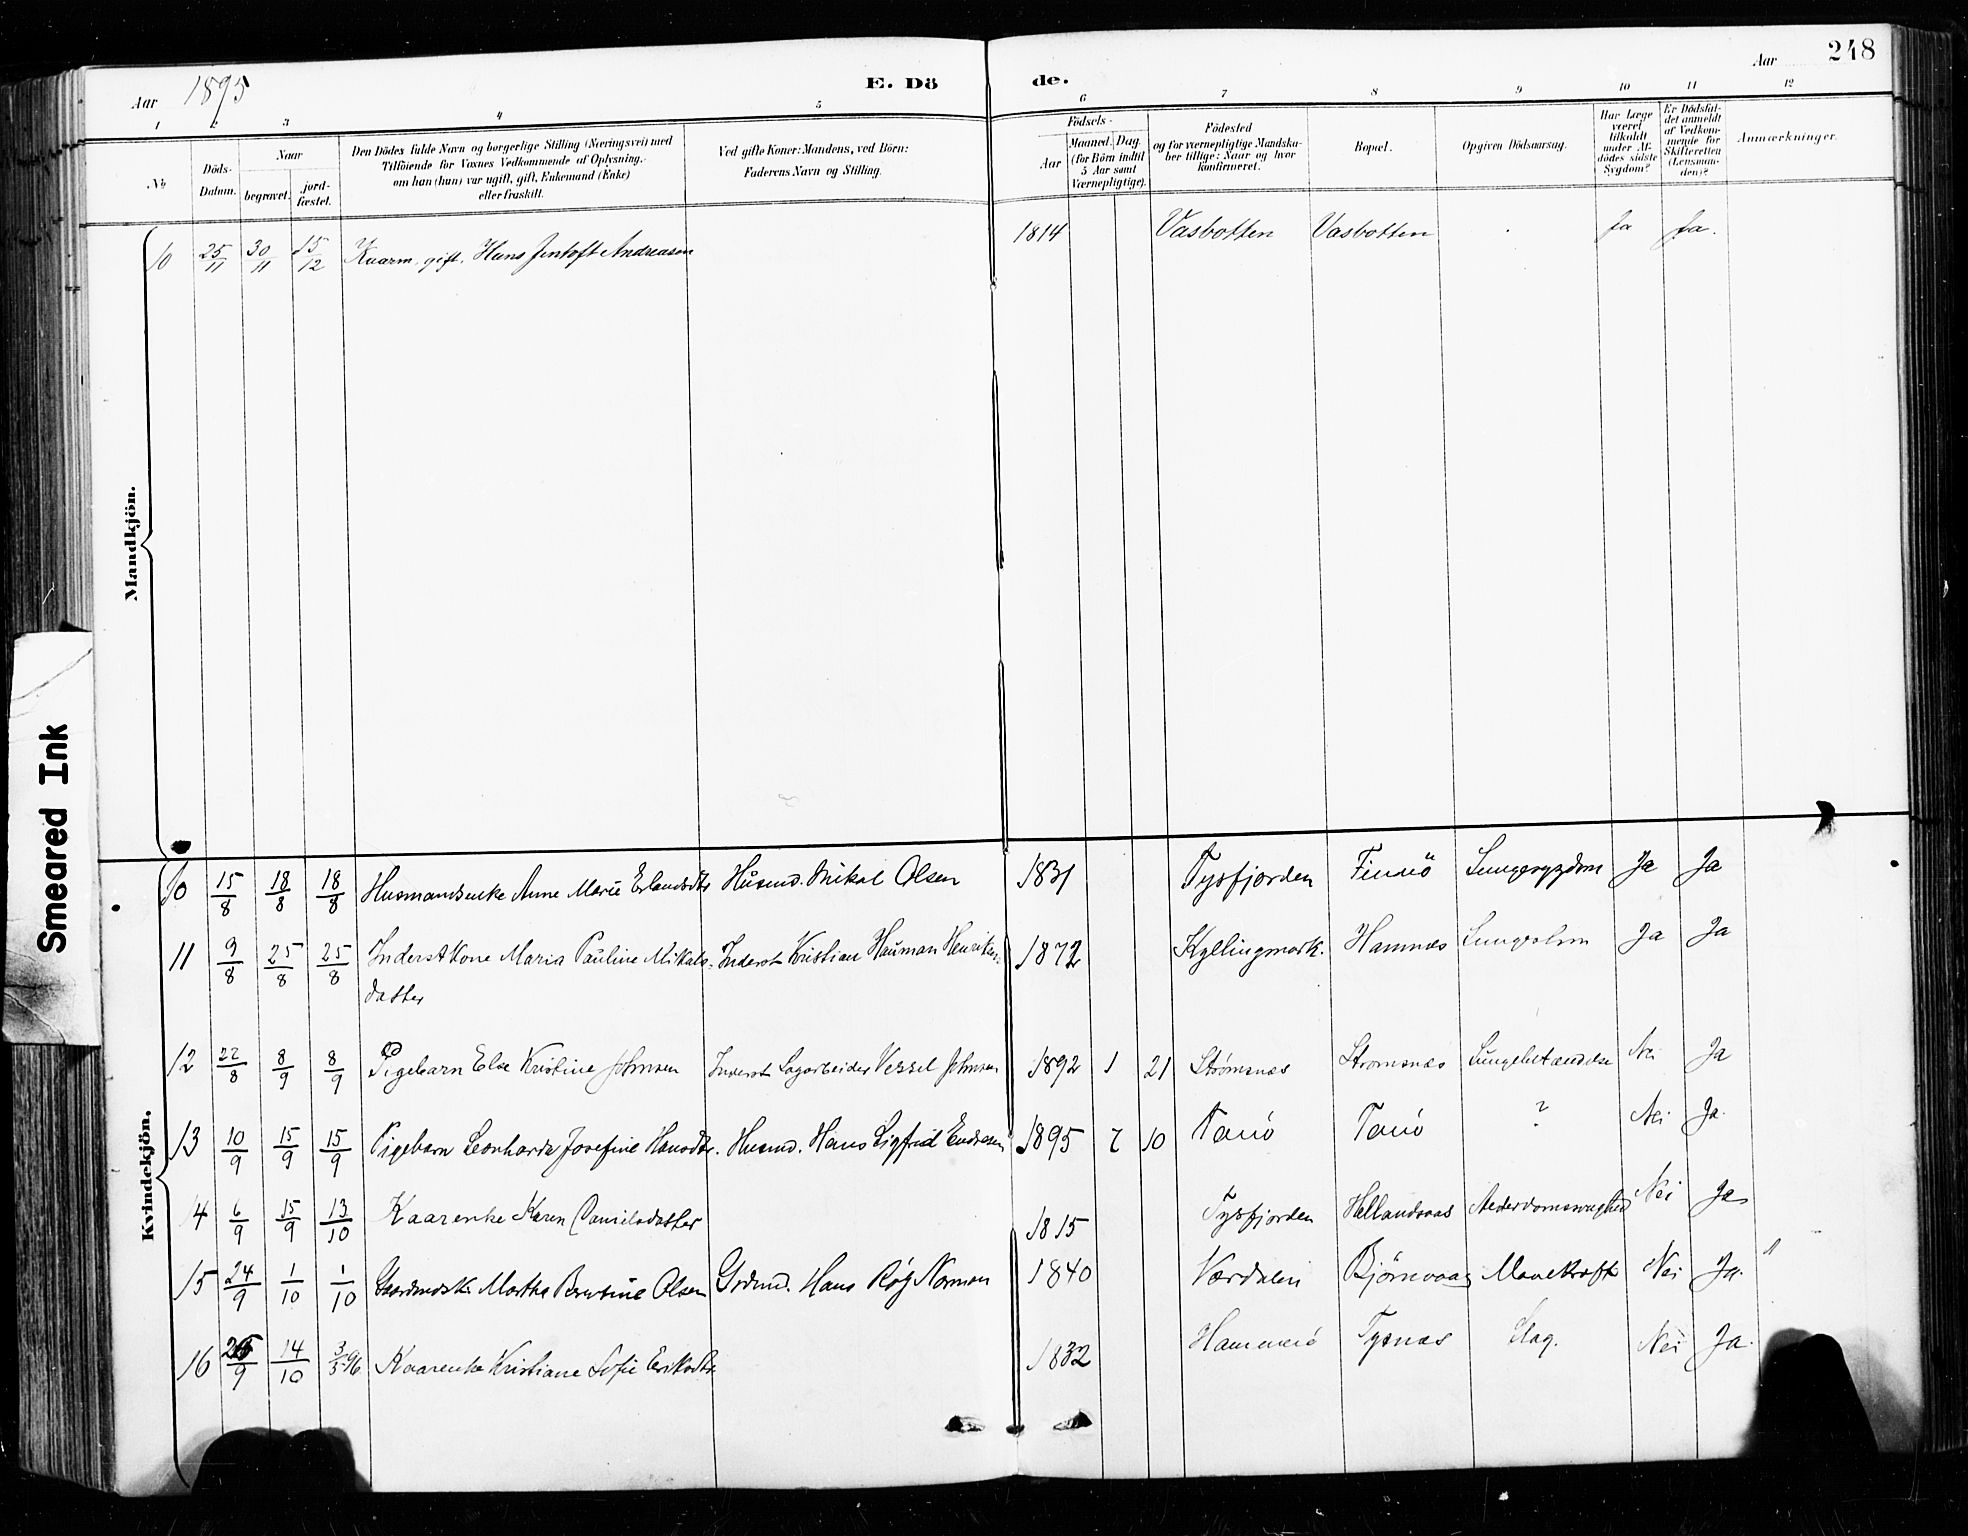 Aar 1895 E. Dö de. Aar 248
1 2 3 4 5 6 7 8 9 10 11 12
No
Döds-
Datum.
Naar
begravet.
jord-
fæstet.
Den Dödes fulde Navn og borgerlige Stilling (Næringsvei) med
Tilföiende for Voxnes Vedkommende af Oplysning,
om han (hun) var ugift, gift, Enkemand (Enke)
eller fraskilt.
Ved gifte Koner: Mandens, ved Börn:
Faderens Navn og Stilling.
Födsels-
Aar
Maaned. Dag.
(for Börn indtil
5 Aar samt
Værnepligtige).
Födested
og for værnepligtige Mandska-
ber tillige: Naar og hvor
konfirmeret.
Bopæl.
Opgiven Dödsaarsag.
Har Læge
været
tilkaldt
under Af-
dödes sidste
Sygdom?
Er Dödsfal-
det anmeldt
af Vedkom-
mende for
Skifteretten
(Lensman-
den)?
Anmærkninger.
Mandkjön.
10 25/11 30/11 15/12 Kaarm. gift. Hans Jentoft Andreasen 1814 Vasbotten Vasbotten Ja Ja.
Smeared Ink
Kvindekjön.
10 15/8 18/8 18/8 Husmandsenke Anne Marie Erlandsdtr Husmd. Mikal Olsen 1831 Tysfjorden Finnö Lungesygdom Ja Ja
11 9/8 25/8 25/8 Inderst Kone Maria Pauline Mikals- Inderst Kristian Hauman Henriksen 1872 Kyllingmark. Hamnes Ja Ja
datter
12 22/8 8/9 8/9 Pigebarn Else Kristine Johnsen Inderst Sagarbeider Vessel Johnsen 1892 1 21 Strømsnæs Strømsnæs Lungebetændelse Nei Ja
13 10/9 15/9 15/9 Pigebarn Leonharda Josefine Hansdtr. Husmd. Hans Sigfrid Endresen 1895 7 10 Tanö Tanö ? Nei Ja.
14 6/9 15/9 13/10 Kaarenke Karen Danielsdatter 1815 Tysfjorden Hellandsaas Alderdomssvaghed Nei Ja
15 24/9 1/10 1/10 Gaardmdsk. Martha Berntine Olsen Grdmd. Hans Røg Norman 1840 Værdalen Bjørnvaag Mavekræft Nei Ja. "
16 25/9 14/10 3/5 96 Kaarenke Kristiane Sofie Eriksdtr 1832 Hammerö Tysnæs Slag. Nei Ja.